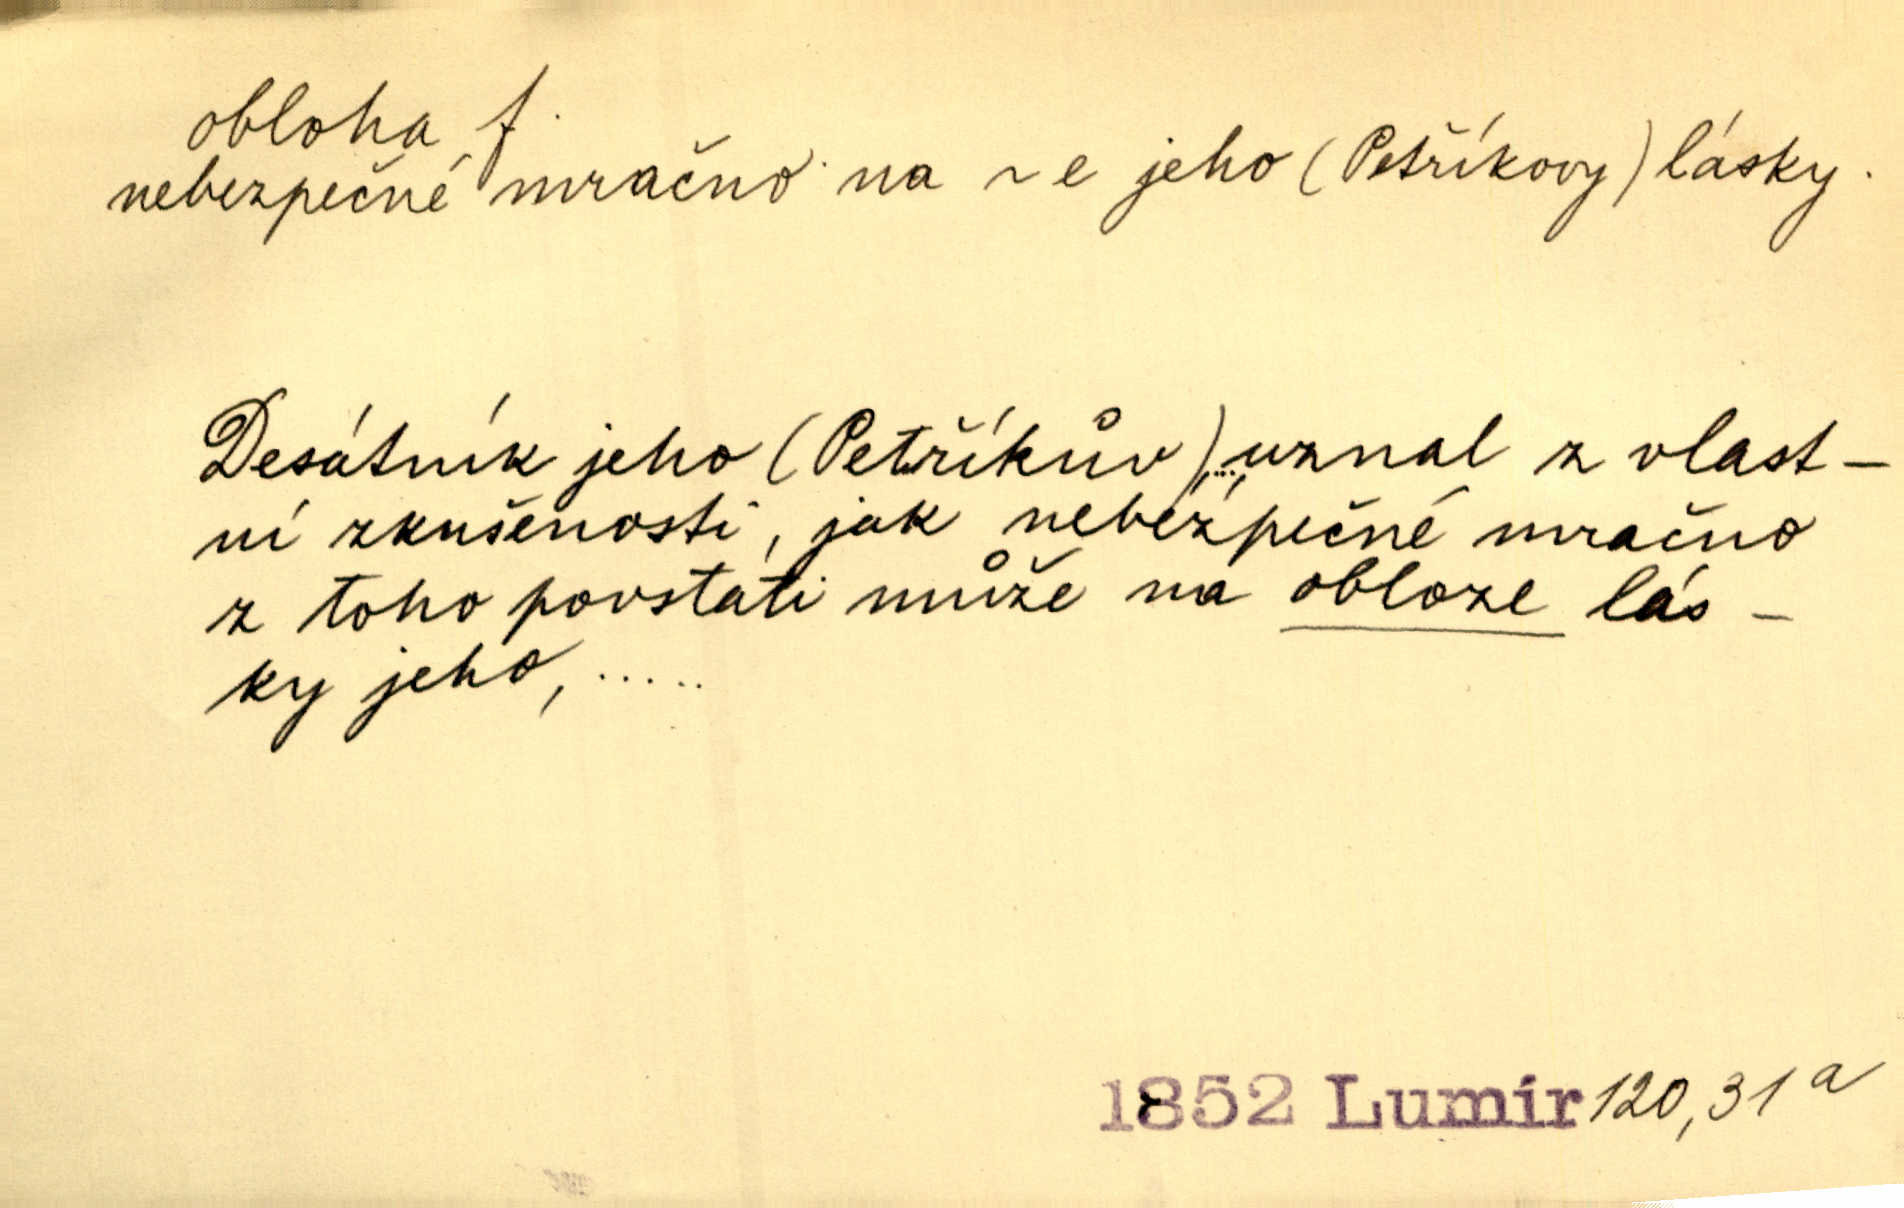 obloha f.
nebezpečné mračno na ~e jeho (Petříkovy) lásky.
Desátník jeho (Petříkův),..., uznal z vlast-
ní zkušenosti, jak nebezpečné mračno
z toho povstati může na obloze lás-
ky jeho, .....
1852 Lumír 120, 31 a